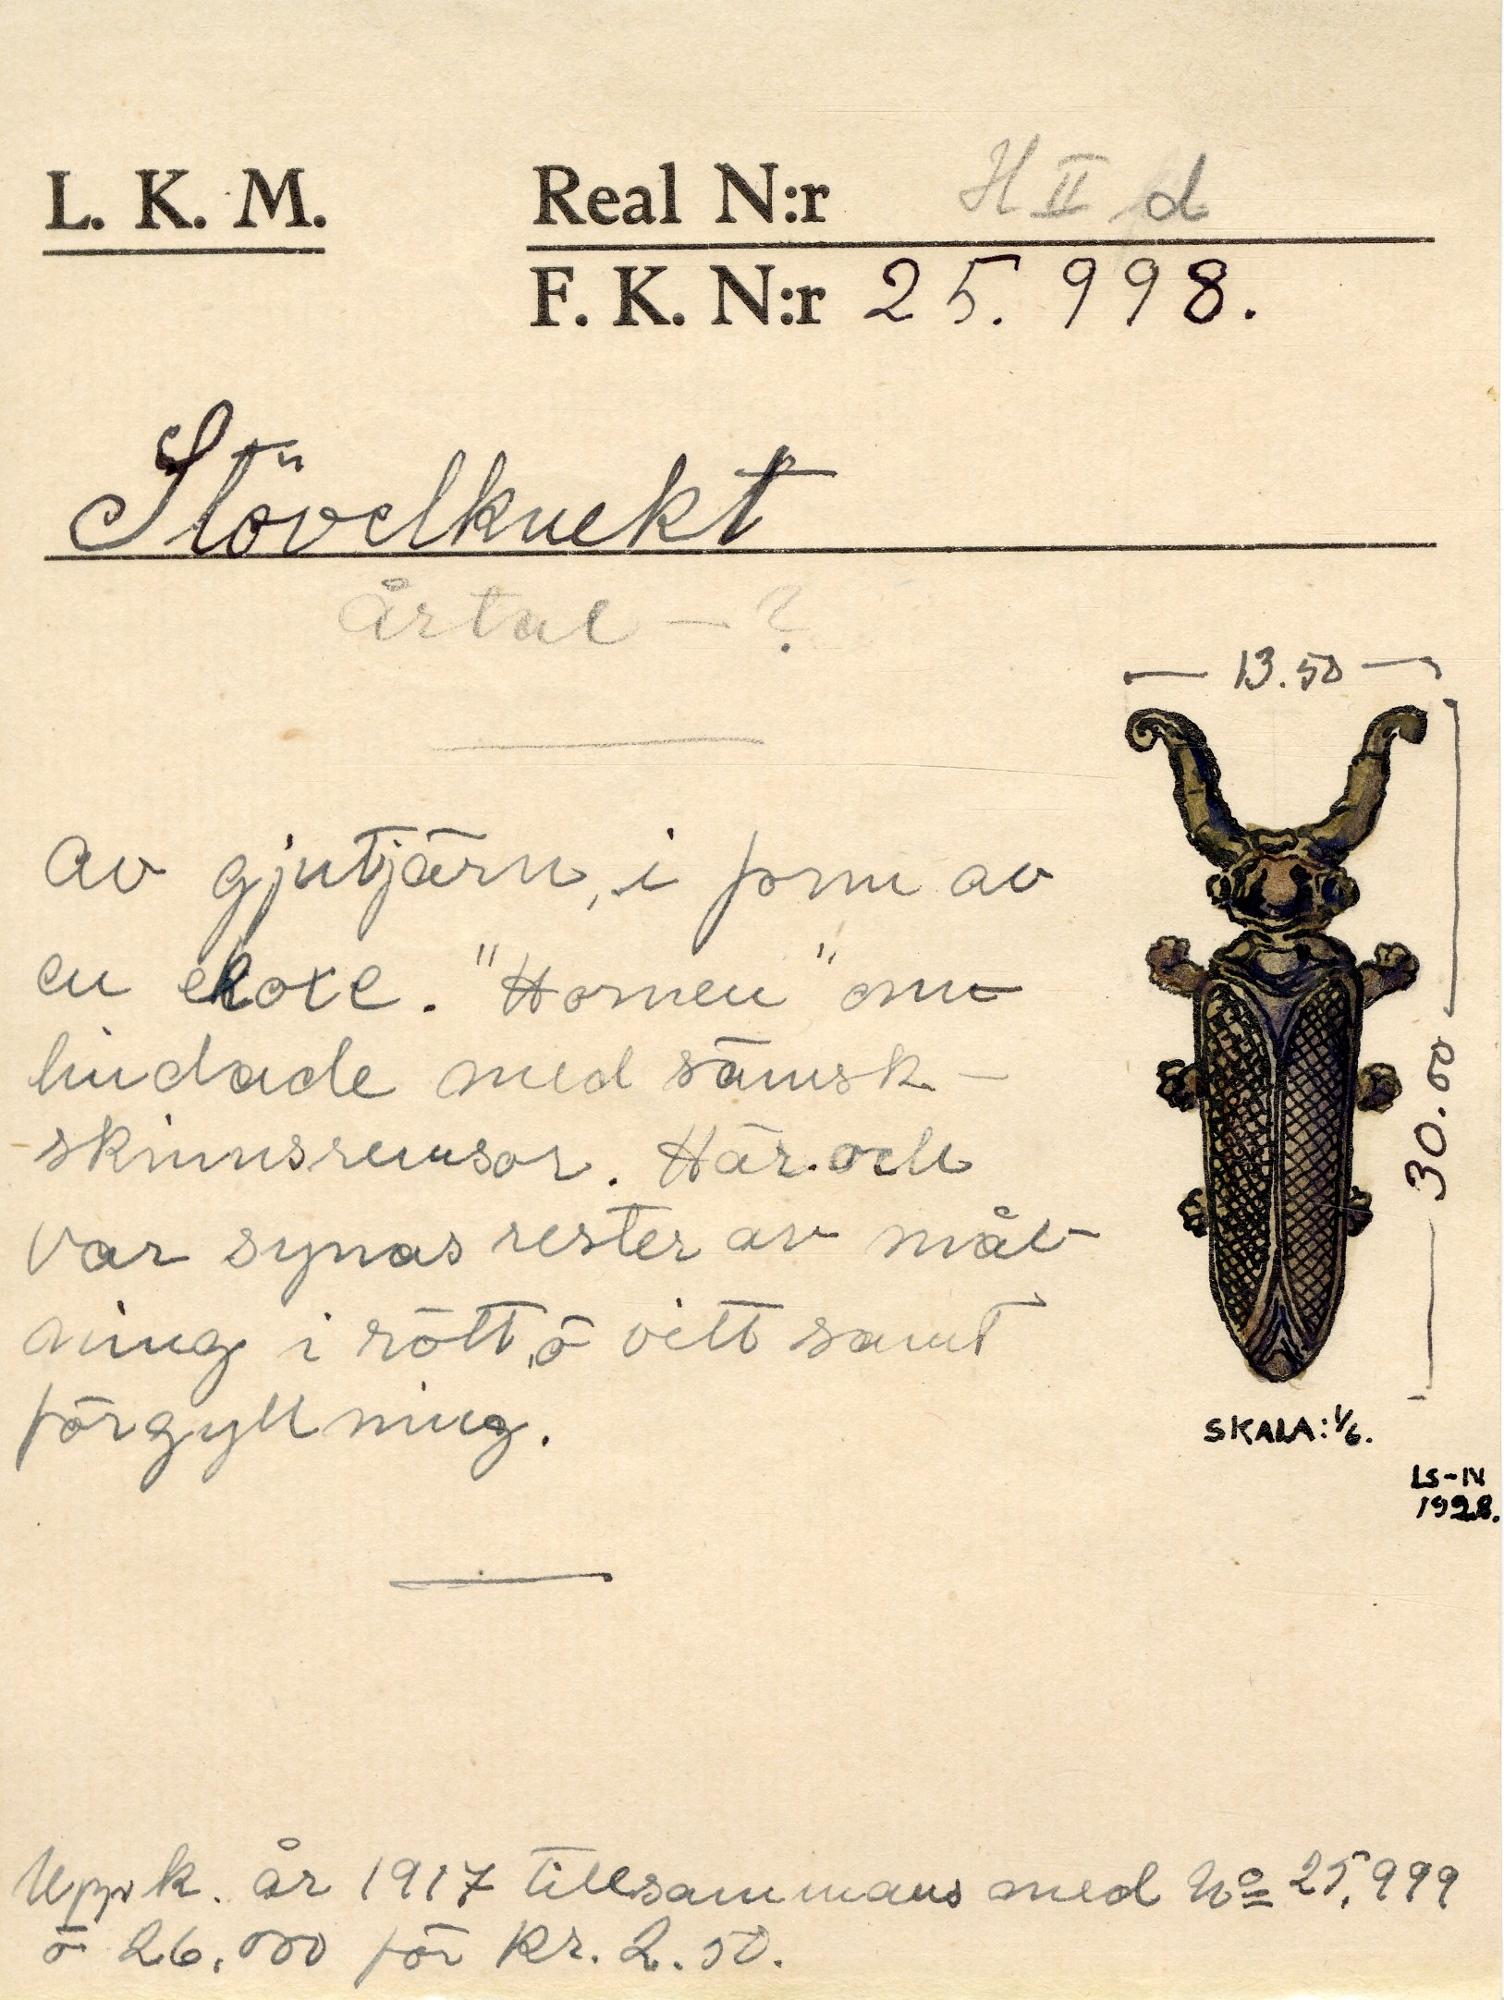 L. K. M.
Real N:r H II d
F. K. N:r 25.998.
Stövelknekt
årtal – ?
13.50
av gjutjärn, i form av
en ekoxe. "Hornen" om-
lindade med sämsk-
skinnsremsor. Här och
var synas rester av mål-
ning i rött, o vitt samt
förgyllning.
30.60
SKALA: 1/6.
LS-IV
1928.
Uppk. år 1917 tillsammans med No 25,999
o 26,000 för kr. 2.50.